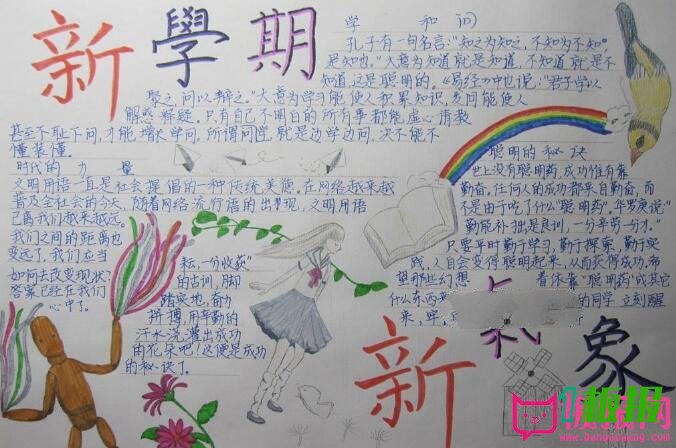 新學期
学 和 问
孔子有一句名言："知之为知之，不知为不知，
是知也。"大意为知道就是知道，不知道就是不
知道，这是聪明的。《易经》中也说："君子学以
聚之，问以辩之。"大意为学习能使人积累知识，发问能使人
解惑释疑。只有自己不明白的所有事都能虚心请教
甚至不耻下问，才能增长学问，所谓同学就是边学边问，决不能不
懂装懂。
时代的力量
文明用语一直是社会提倡的一种传统美德。在网络越来越
普及全社会的今天，随着网络流行语的出现，文明用语
已离我们越来越远。
我们之间的距离也
变远了，我们应当
如何去改变现状？
答案已经在我们
心中了。
聪明的秘诀
世上没有聪明药，成功惟有靠
勤奋，任何人的成功都来自勤奋，而
不是由于吃了什么"聪明药"。华罗庚说："
勤能补拙是良训，一分辛劳一分才。"
只要平时勤于学习，勤于探索，勤于实
践，人自会变得聪明起来，从而获得成功，希
望那些幻想 着依靠"聪明药"或其它
什么东西来 的同学立刻醒
来，
耘，一份收获"
的古训，脚
踏实地，奋力
拼搏，用辛勤的
汗水浇灌出成功
的花朵吧！这便是成功
的秘诀了。
新氣象
板报网
www.banbaowang.com